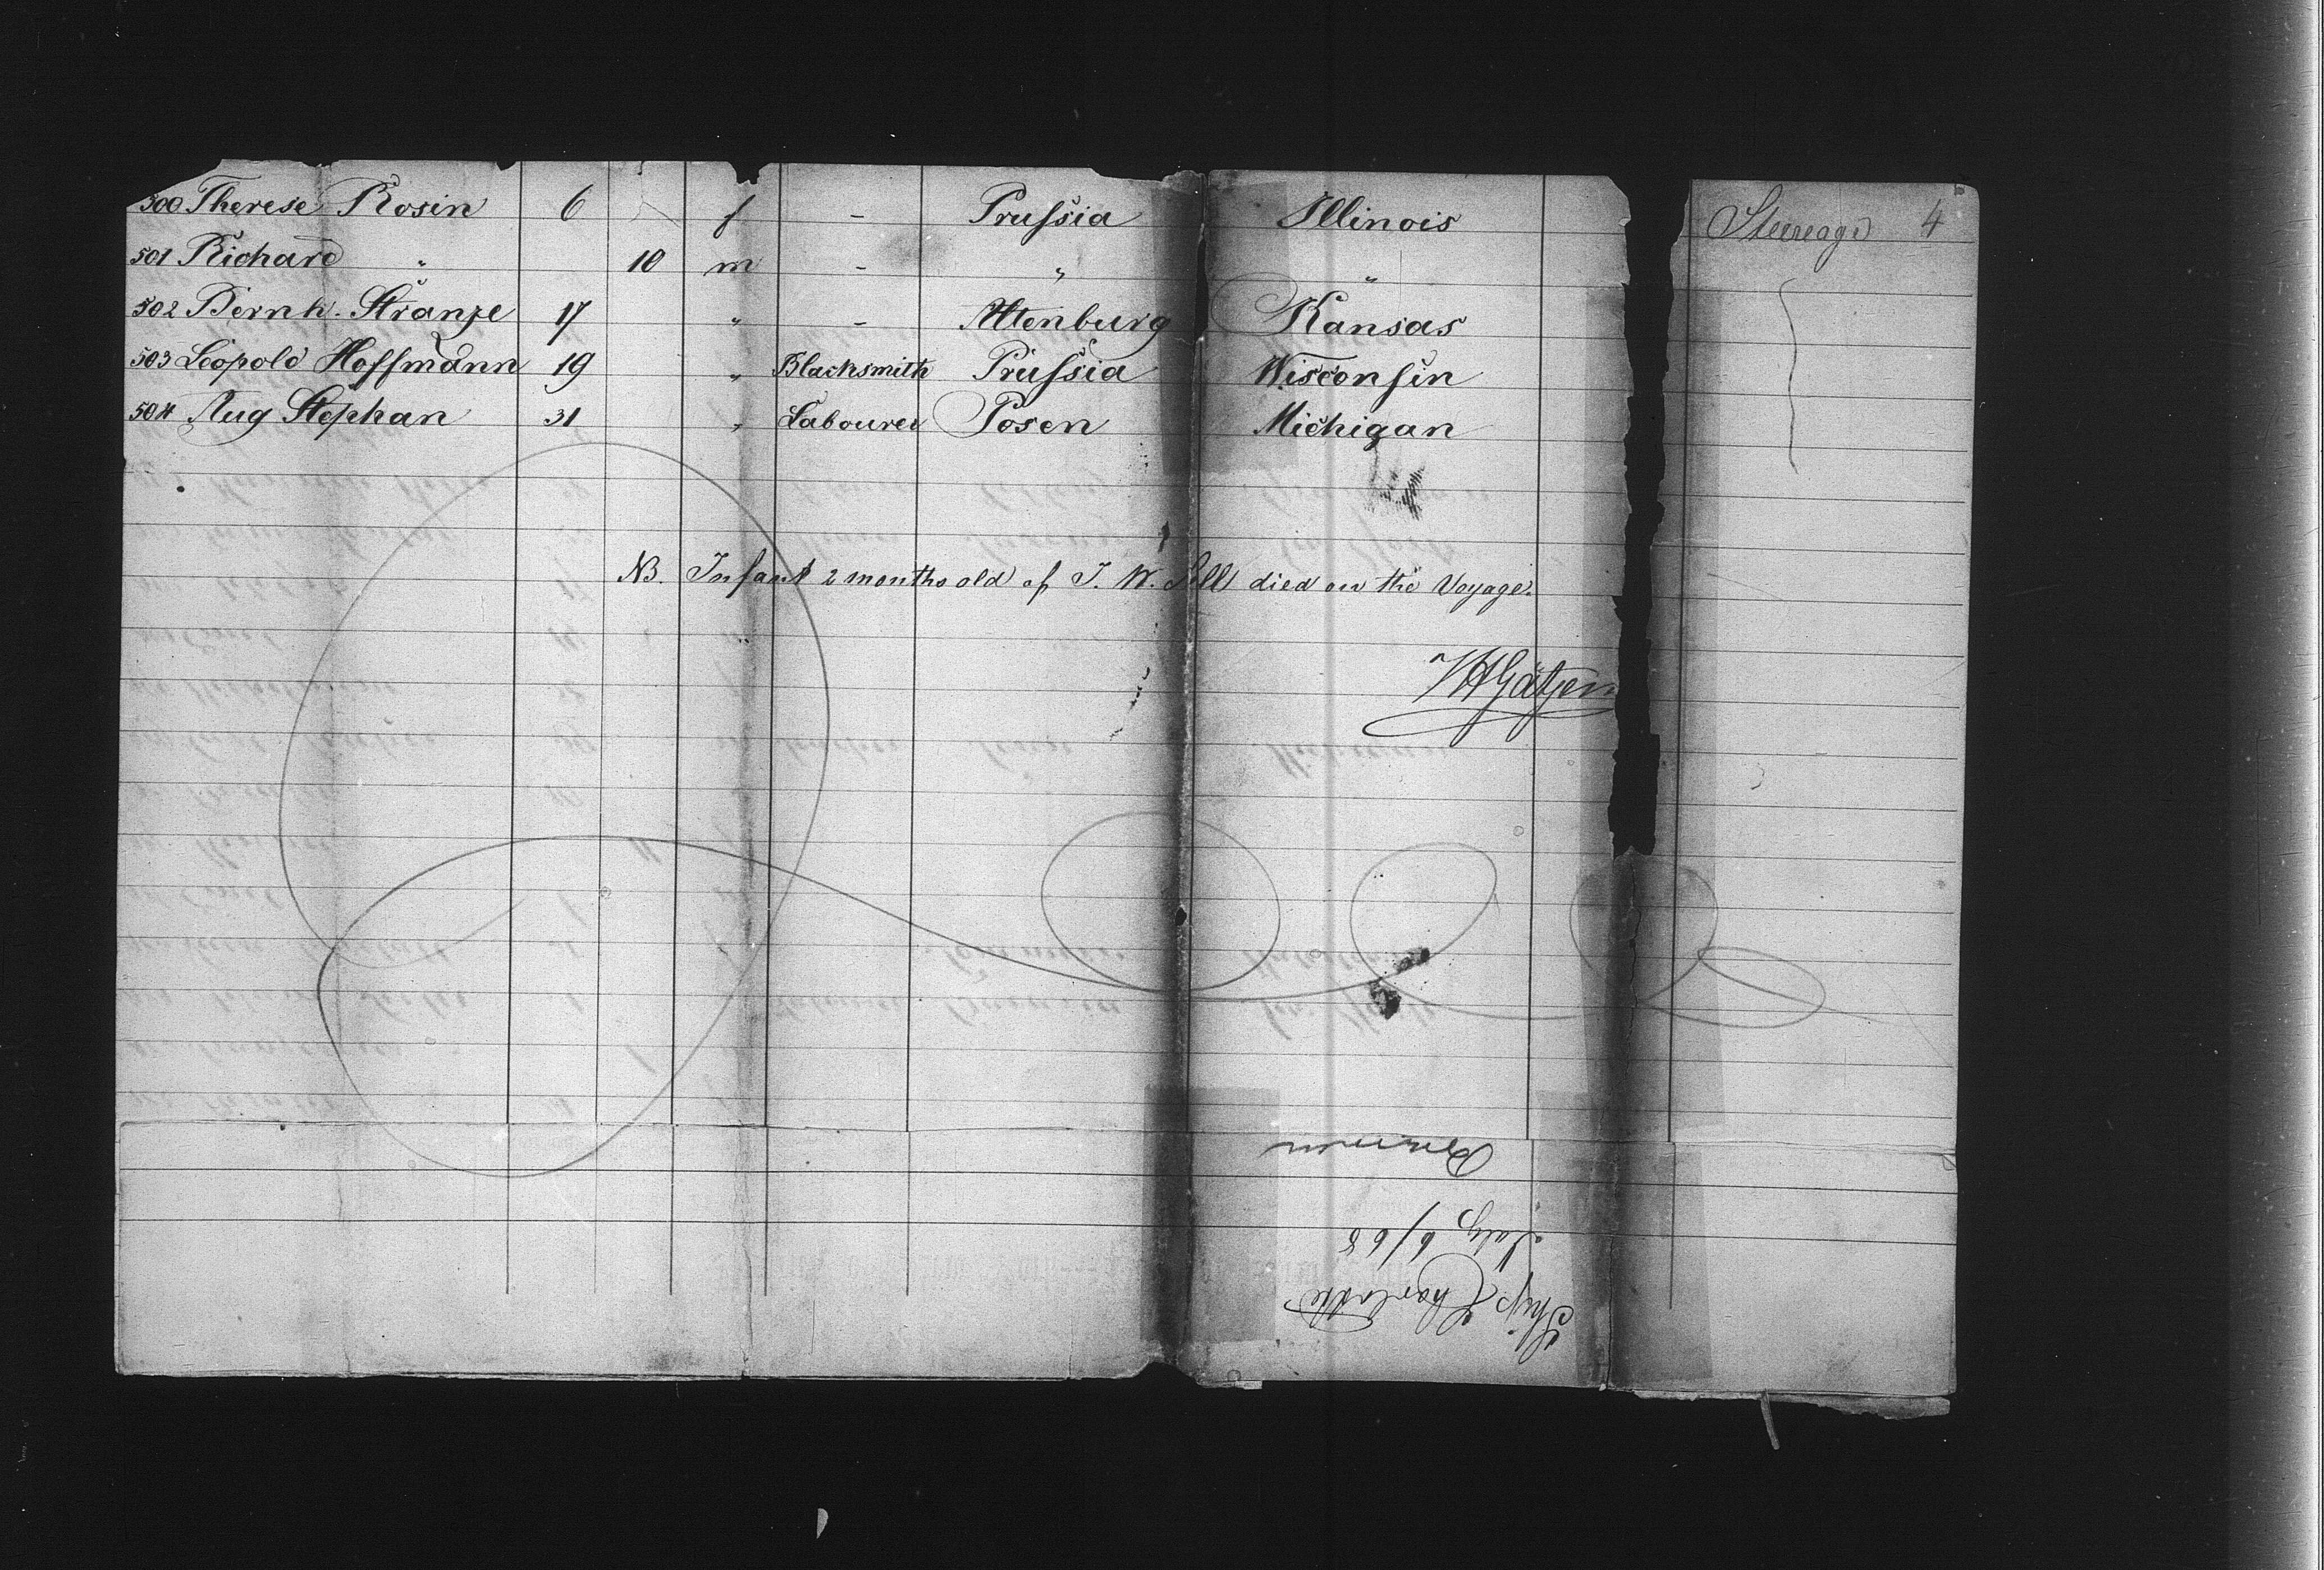 500 Therese Rosin 6 f - Prussia Illinois Steerage 4
501 Richard " 10 m - " "
502 Bernh. Stranze 17 " - Altenburg Kansas
503 Leopold Hoffmann 19 " Blacksmith Prussia Wisconsin
504 Aug Stephan 31 " Labourer Posen Michigan
NB. Infant 2 months old of J. W. died on the Voyage.
Ship Charlotte
July 6/68
Bremen